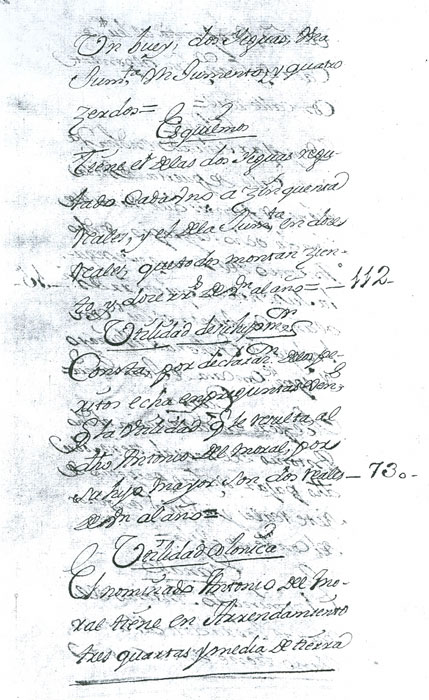 Un buey, dos Yeguas, Una
Jum.ta Un Jumento, y quatro
zerdos=
Esquilmos
Tiene el de las dos Yeguas regu-
lado Cada uno a zinquenta
reales, y el de la Jum.ta en doze
reales, que todo montan zien-
to y doze rr.s de v.n al año= — 112-
Utilidad de
Consta, por declaraz.n de los pe-
ritos echa
q.e la Utilidad q.e le resulta al
dho Antonio del Moral, por
su hijo mayor son dos reales — 730-
de v.n al año=
Utilidad colonica
El nominado Antonio del Mo-
ral tiene en Arrendamiento
tres quartas y media de tierra